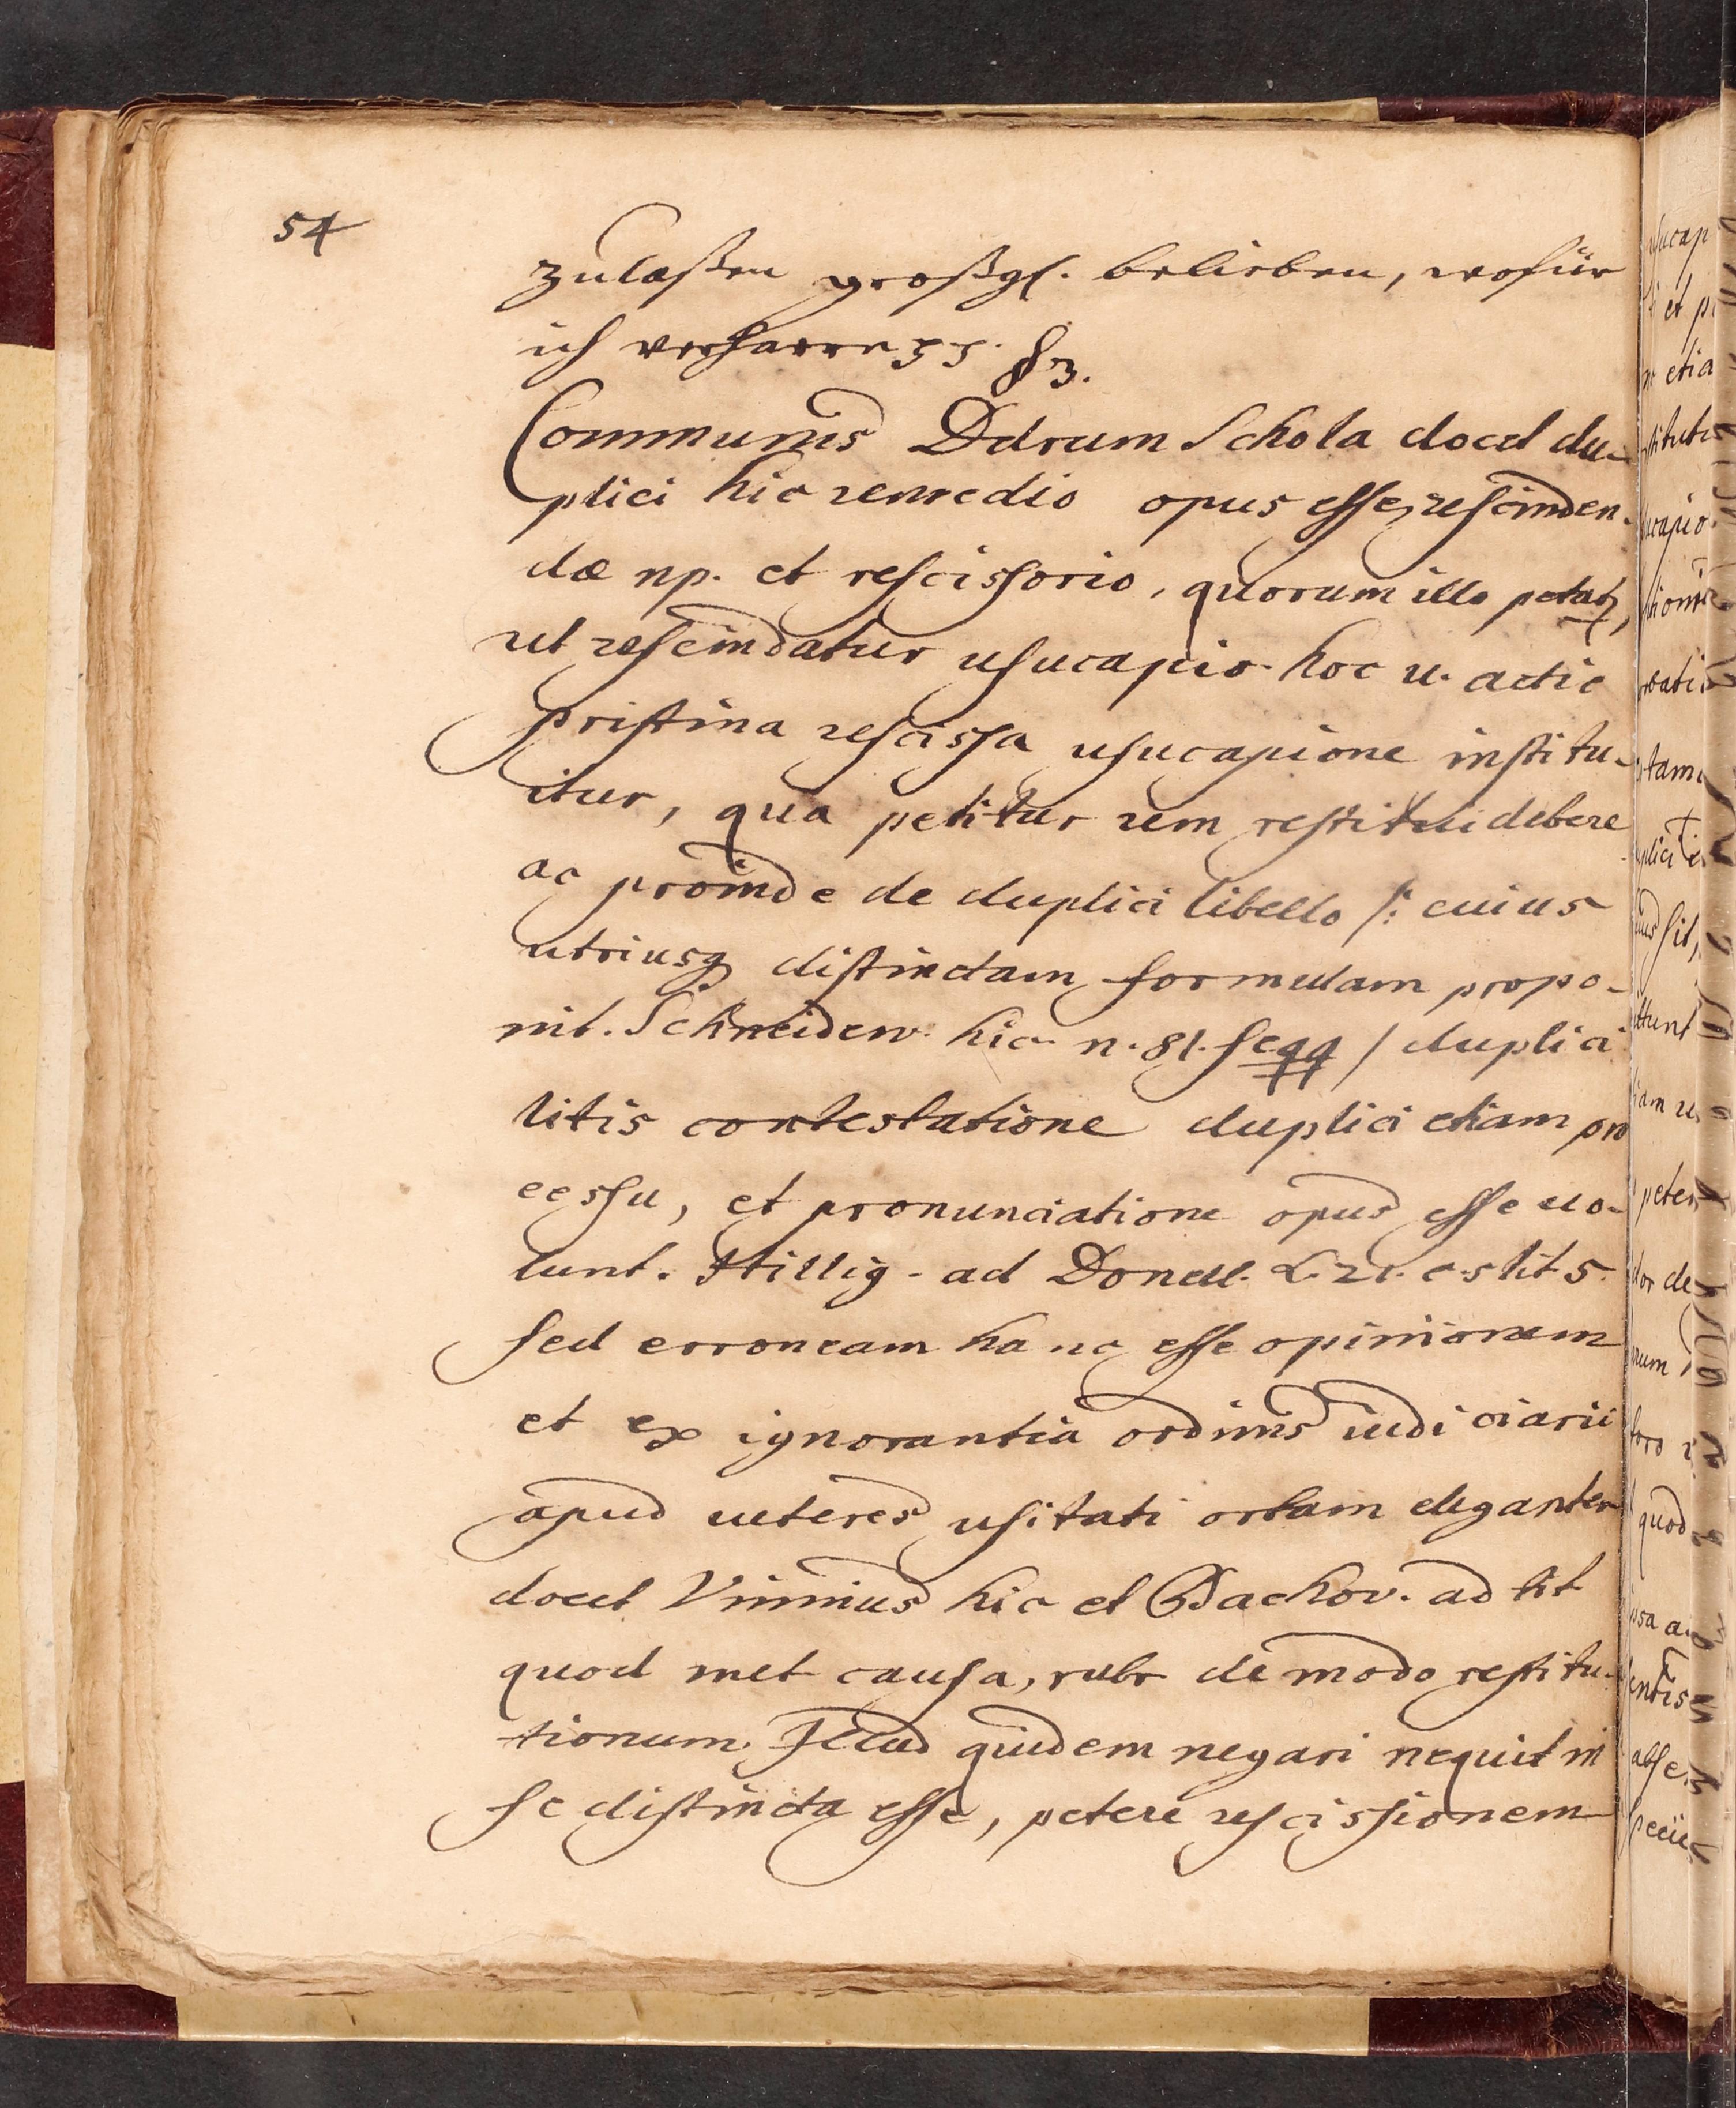 54
zulaßen großgl. belieben, wofür
ich verharre
§ 3.
Communis Ddrum Schola docet du-
plici hic remedio opus esse, rescinden-
dæ np. et rescissorio, quorum illo petatr,
ut rescindatur usucapio. hoc u. actio
pristina rescissa usucapione institu-
itur, qua petitur rem restitui debere
ac proinde de duplici libello /: cuius
utriusq distinctam formulam propo-
nit. Schneidew. hic n. 81. seqq / duplici
litis contestatione duplici etiam pro
cessu, et pronunciatione opus esse uo-
lunt. Hillig. ad Donell. L. 21. c. 5 lit 5.
sed erroneam hanc esse opinionem
et ex ignorantia ordinis iudiciarii
apud ueteres usitati ortam eleganter
docet Vinnius hic et Bachov. ad tit
quod met causa, rubr de modo restitu-
tionum. Illud quidem negari nequit in
se distincta esse, petere rescissionem